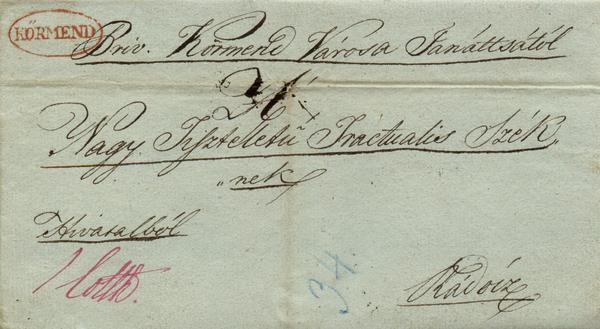 KÖRMEND
Priv. Körmend Városa Tanáttsától
Nagy Tiszteletű Tractualis Szék
„nek
Hivatalból
1 loth.
34
Rádócz